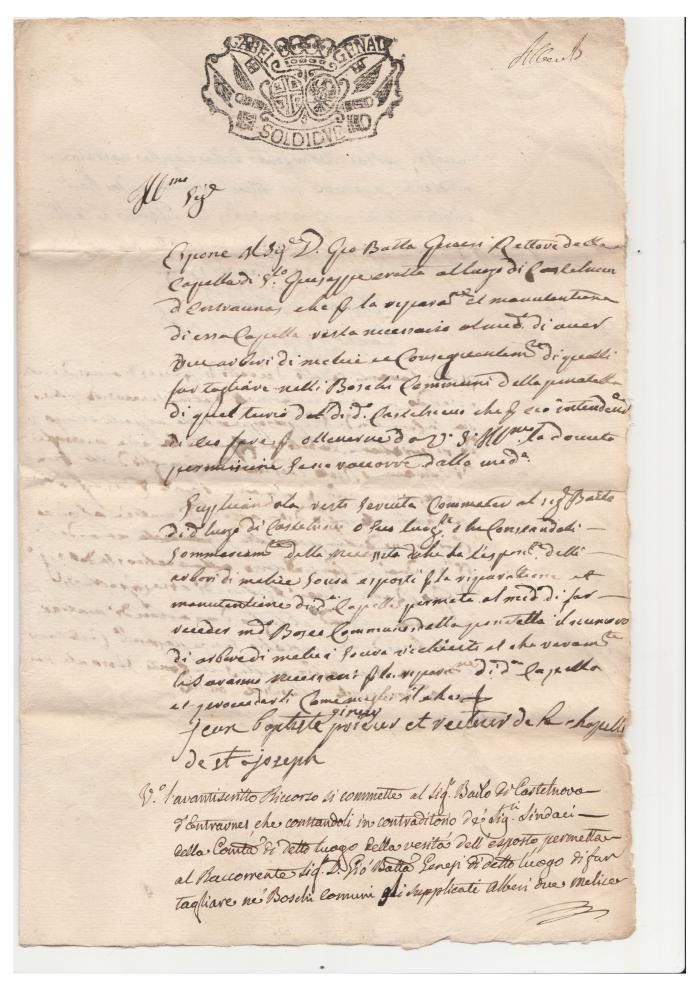 GABEL GENAL
SOLDI DVE
Ill.mo Sig.r
Espone il Sig.r D. Gio Batta Rettore della
Capella di S.to Giuseppe eretta al luogo di Castelnuovo
d'Entraunas che p la ripara.ne et manutentione
di essa Capella resta necessario al med.o di aver
due arbori di melice et Consequentem.te di quelli
far tagliare nelli Boschi Communi della
di quel di d.o Castelnovo che p ciò
di p ottenerne da V. S. Ill.ma la dovuta
permissione se ne raccorre dalla med.a
Supplicandola resti servita Commetter al sig.r Baile
di d.o luogo di Castelnovo o suo luog.te che Constandoli
Sommariam.te della necessità delli
arbori di melice sovra esposti p la riparatione et
manutentione di d.a Capella permetta al med.o di far
recider ne d.i Bosco Communi della il numero
di arbori di melice sovra et che veram.te
le saranno necessari p la ripara.ne di d.a Capella
et provederli Come meglio
jean baptiste prieur et recteur de la chapelle
de st joseph
V.o l'avantiscritto Riccorso si commette al Sig.r Bailo di Castelnovo
d'Entraunes che constandoli in contraditorio de' Sig.ri Sindaci
della Comtà di detto luogo della verità dell'esposto permetta
al Raccorrente Sig.r D. Gio Batta Genesi di detto luogo di far
tagliare ne' Boschi comuni gli supplicati alberi due melice